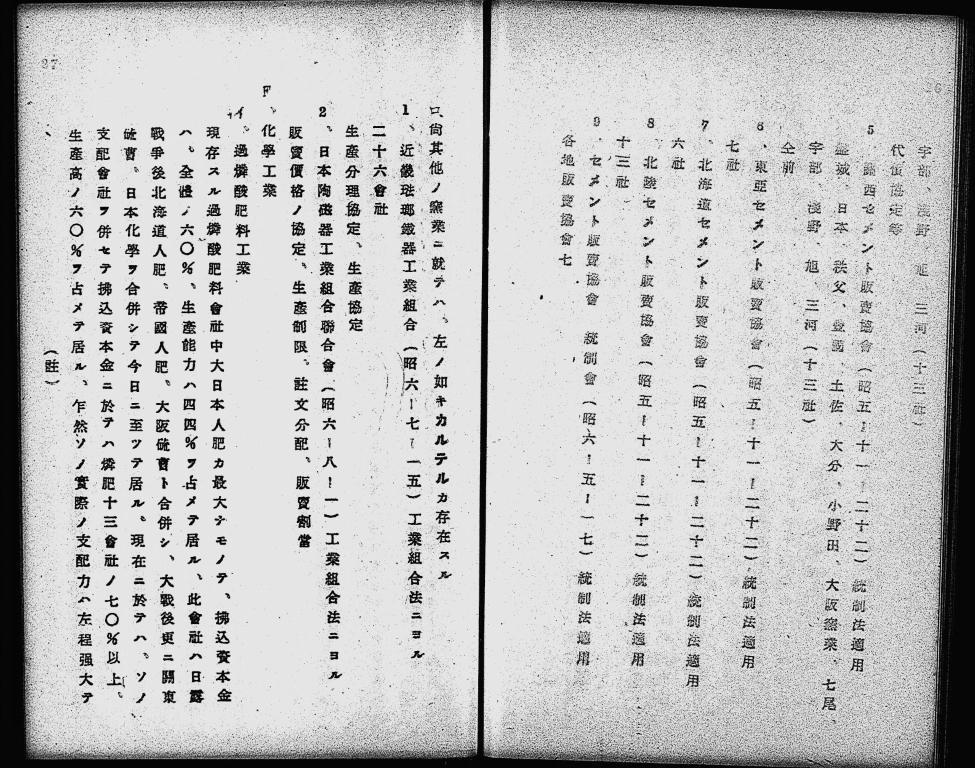 宇部、淺野 旭 三河(十三社)
代價協定等
5 關西セメント販賣協會(昭五―十一―二十二)統制法適用
盤城、日本 秩父、豊國、土佐、大分、小野田、大阪窯業、七尾、
宇部、淺野、旭、三河(十三社)
仝前
6、東亞セメント販賣協會(昭五―十一―二十二)統制法適用
七社
7、北海道セメント販賣協會(昭五―十一―二十二)統制法適用
六社
8、北陸セメント販賣協會(昭五―十一―二十二)統制法適用
十三社
9、セメント販賣協會 統制會(昭六―五―一七)統制法適用
各地販賣協會七
ロ、尙其他ノ窯業ニ就テハ、左ノ如キカルテルカ存在スル
1、近畿琺瑯鐵器工業組合(昭六―七―一五)工業組合法ニヨル
二十六會社
生産分理協定、生產協定
2、日本陶磁器工業組合聯合會(昭六―八―一)工業組合法ニヨル
販賣價格ノ協定、生產制限、註文分配、販賣割當
F、化學工業
イ、過燐酸肥料工業
現存スル過燐酸肥料會社中大日本人肥カ最大ナモノテ、拂込資本金
ハ、全體ノ六〇%、生產能力ハ四四%ヲ占メテ居ル、此會社ハ日露
戰爭後北海道人肥、帝國人肥、大阪硫曹ト合併シ、大戰後更ニ關東
硫曹、日本化學ヲ合併シテ今日ニ至ツテ居ル、現在ニ於テハ、ソノ
支配會社ヲ併セテ拂込資本金ニ於テハ燐肥十三會社ノ七〇%以上、
生產高ノ六〇%ヲ占メテ居ル、乍然ソノ實際ノ支配力ハ左程强大テ
(註)
27